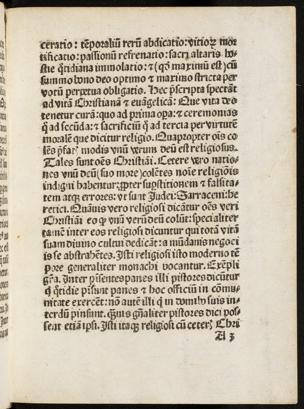 ceratio: tēporaliū rerū abdicatio: vitioꝝ mor
tificatio: passionū refrenatio: sacri altaris ho
stie q̄tidiana immolatio: ⁊ (qđ maximū est) cū
summo bono deo optimo ⁊ maximo stricta per
votū perpetua obligatio. Hec p̄scripta spectāt
ad vitā Christianā ⁊ euāgelicā: Que vita des
tenetur curā: quo ad prima opa: ⁊ ceremonias
ad secūda: ⁊ sacrificiū ad tercia per virtutē
morale que dicitur religio. Quapropter ois
modis vnū verum deū est religiosus.
Tales sunt oēs Christiāi. Cetere vero natio
nes vnū deū (suo more) colētes noīe religiōis
indigni habentur, ꝓpter supstitionem ⁊ falsita
tem atqꝫ errores: vt sunt Judei: Sarraceni: he
retici. Quāuis vero religiosi dicātur oēs veri
Christiāi eo ꝙ vnū verū deū colūt: specialiter
tamē inter eos religiosi dicuntur qui totā vitā
suam diuino cultui dedicāt: a mūdanis negoci
is se abstrahētes. Isti religiosi isto moderno tē
pore generaliter monachi vocantur. Exēpli
grā. Inter p̄sentes panes illi pistores dicūtur
q̄ q̄tidie pisunt panes ⁊ hoc officiū in cōmu
nitate exercēt: nō autē illi q̄ in domibꝰ suis in
terdū pinsunt. q̄uis gn̄aliter pistores dici pos
seāt etiā ipsi. Isti itaqꝫ religiosi cū ceterꝭ Chri
A 3